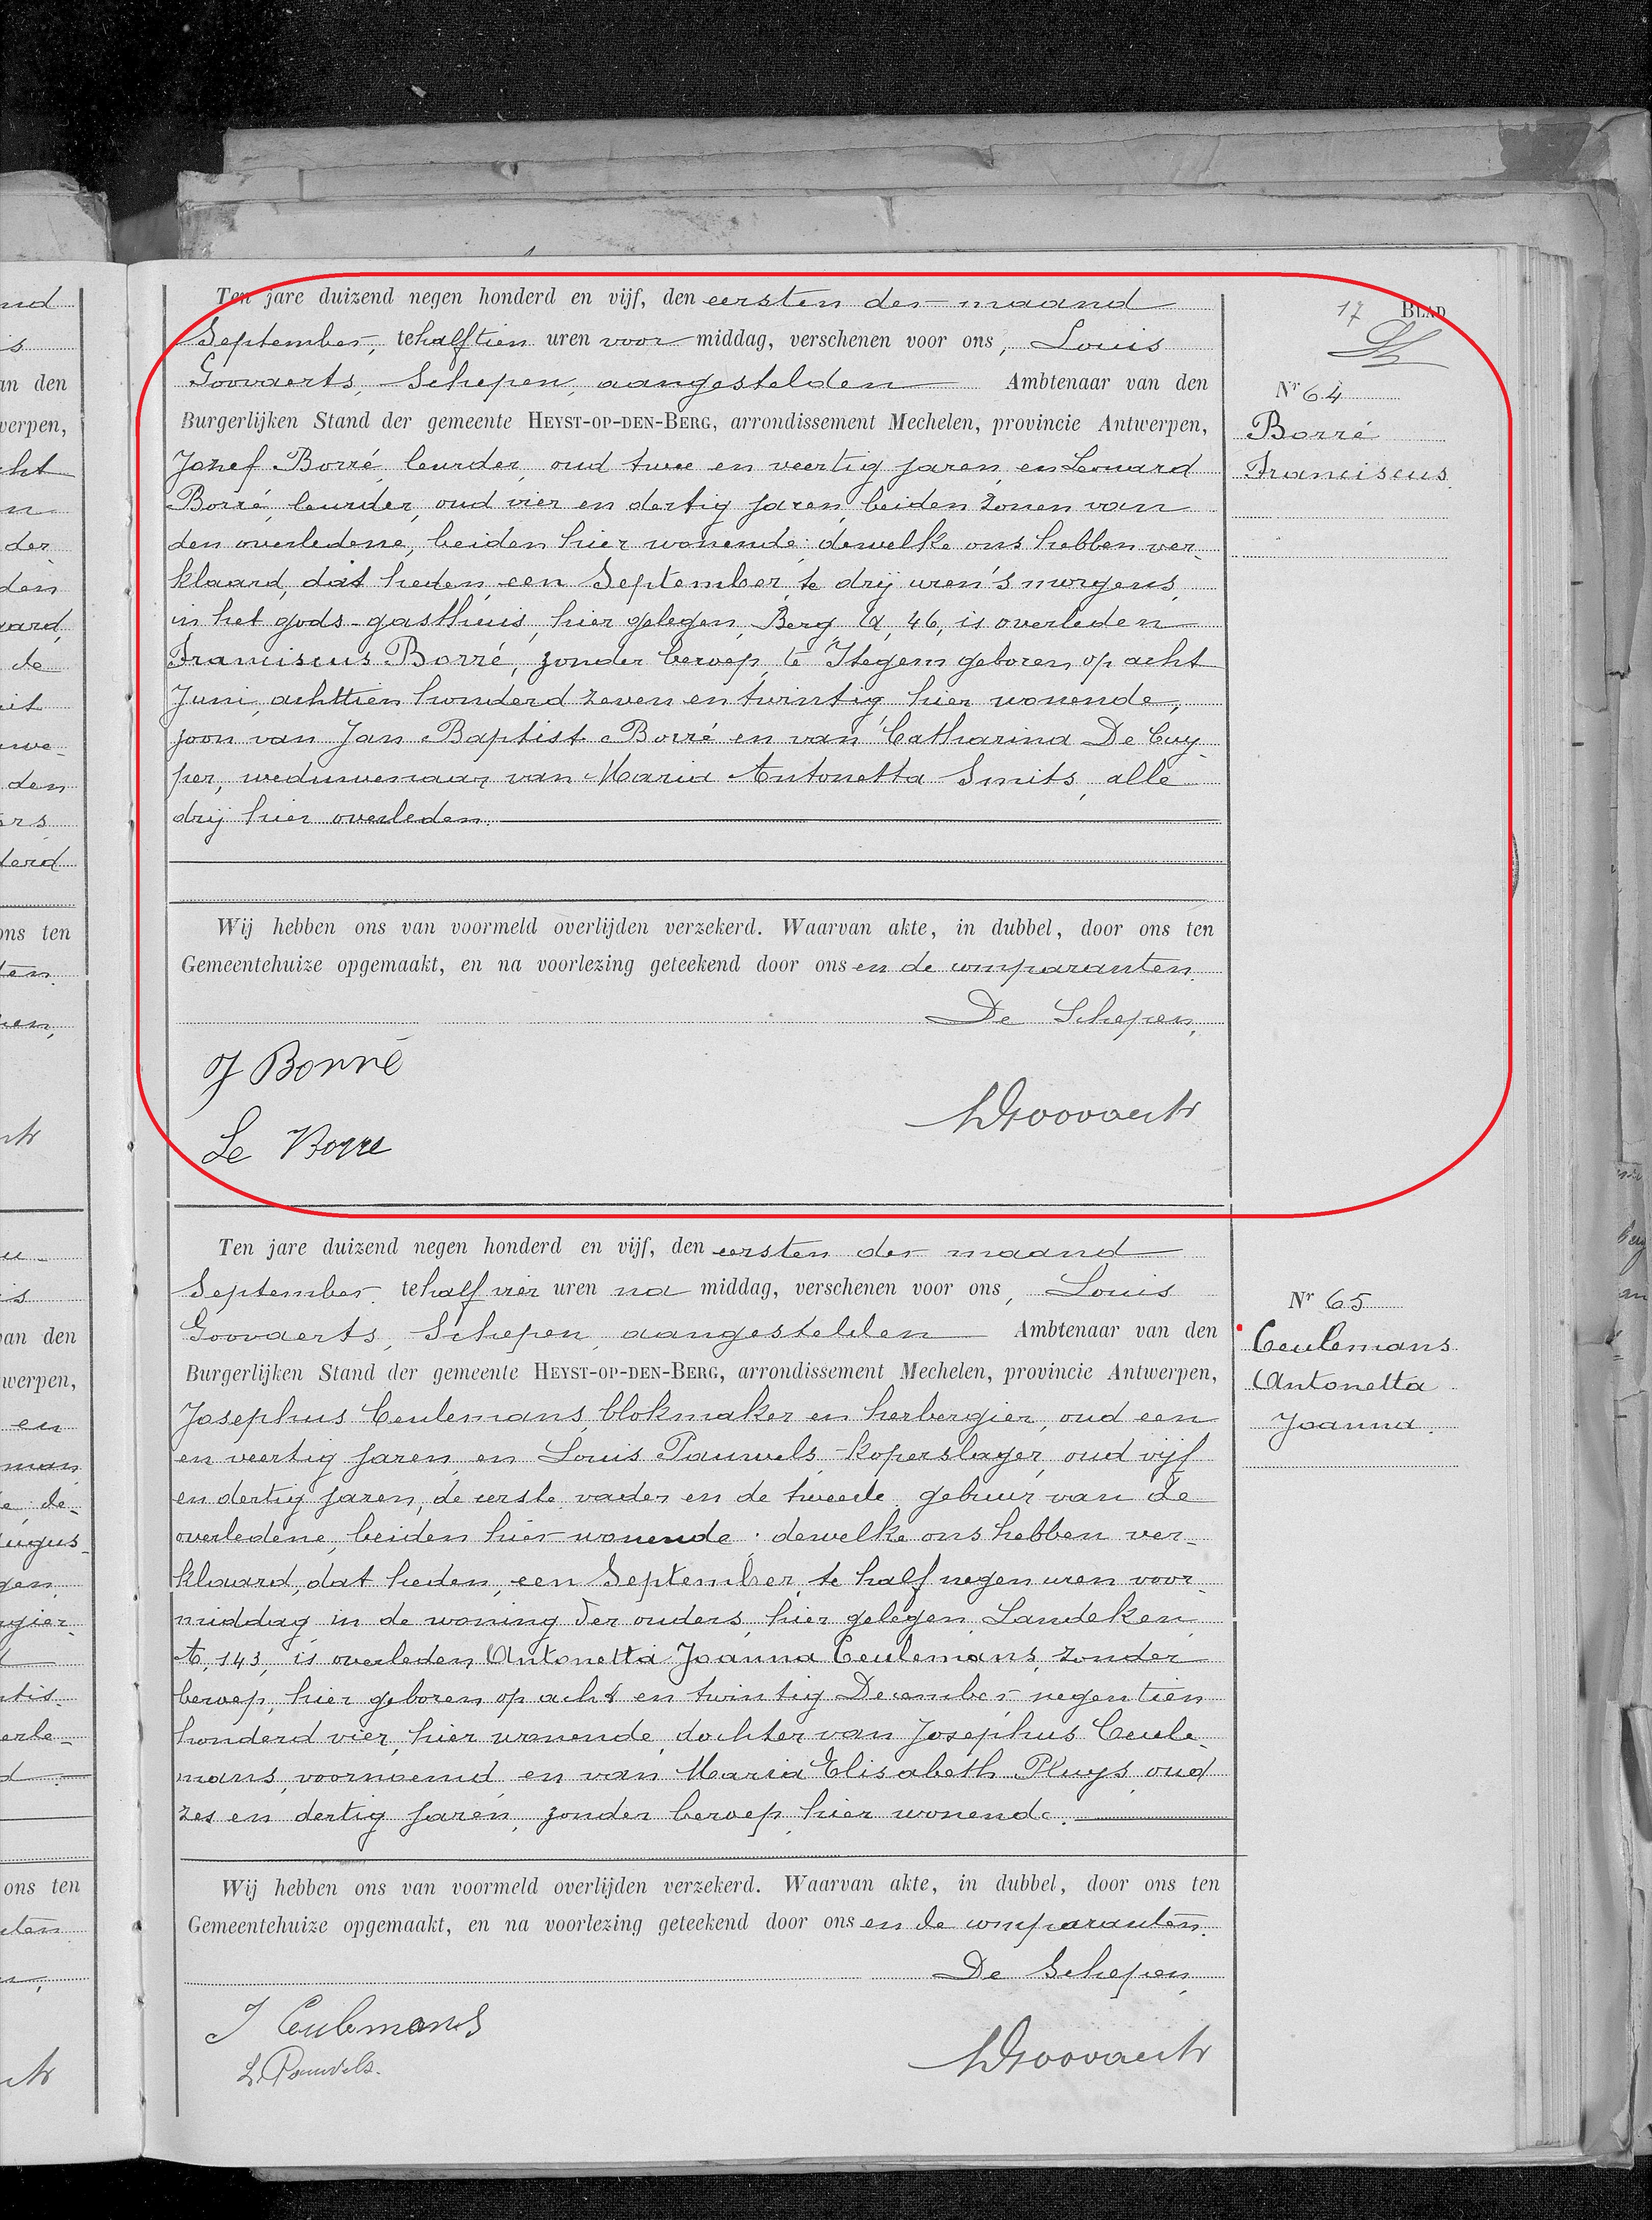 Ten jare duizend negen honderd en vijf, den eersten der maand
September, te half tien uren voor middag, verschenen voor ons, Louis
Goovaerts, Schepen, aangestelden Ambtenaar van den
Burgerlijken Stand der gemeente HEYST-OP-DEN-BERG, arrondissement Mechelen, provincie Antwerpen,
Jozef Borré, leurder, oud twee en veertig jaren, en Leonard
Borré, leurder, oud vier en dertig jaren, beiden zonen van
den overledene, beiden hier wonende: dewelke ons hebben ver-
klaard, dat heden, een September, te drij uren 's morgens,
in het gods-gasthuis, hier gelegen, Berg A, 46, is overleden
Franciscus Borré, zonder beroep, te Itegem geboren, op acht
Juni, achttien honderd zeven en twintig, hier wonende,
zoon van Jan Baptist Borré en van Catharina De Cuy-
per, weduwenaar van Maria Antonetta Smits, alle
drij hier overleden.
Wij hebben ons van voormeld overlijden verzekerd. Waarvan akte, in dubbel, door ons ten
Gemeentehuize opgemaakt, en na voorlezing geteekend door ons en de comparanten.
De Schepen,
J Borré
Le Borre
LGoovaerts
17 BLAD
Nr 64
Borré
Franciscus
Ten jare duizend negen honderd en vijf, den eersten der maand
September, te half vier uren na middag, verschenen voor ons, Louis
Goovaerts, Schepen, aangestelden Ambtenaar van den
Burgerlijken Stand der gemeente HEYST-OP-DEN-BERG, arrondissement Mechelen, provincie Antwerpen,
Josephus Ceulemans, blokmaker en herbergier, oud een
en veertig jaren, en Louis Pauwels, koperslager, oud vijf
en dertig jaren, de eerste vader en de tweede gebuur van de
overledene, beiden hier wonende: dewelke ons hebben ver-
klaard, dat heden, een September, te half negen uren voor-
middag in de woning der ouders, hier gelegen, Landeken,
A, 143, is overleden Antonetta Joanna Ceulemans, zonder
beroep, hier geboren op acht en twintig December negentien
honderd vier, hier wonende, dochter van Josephus Ceule-
mans, voornoemd en van Maria Elisabeth Pluys, oud
zes en dertig jaren, zonder beroep, hier wonende.
Wij hebben ons van voormeld overlijden verzekerd. Waarvan akte, in dubbel, door ons ten
Gemeentehuize opgemaakt, en na voorlezing geteekend door ons en de comparanten.
De Schepen,
J Ceulemans
L. Pauwels.
LGoovaerts
Nr 65
Ceulemans
Antonetta
Joanna.